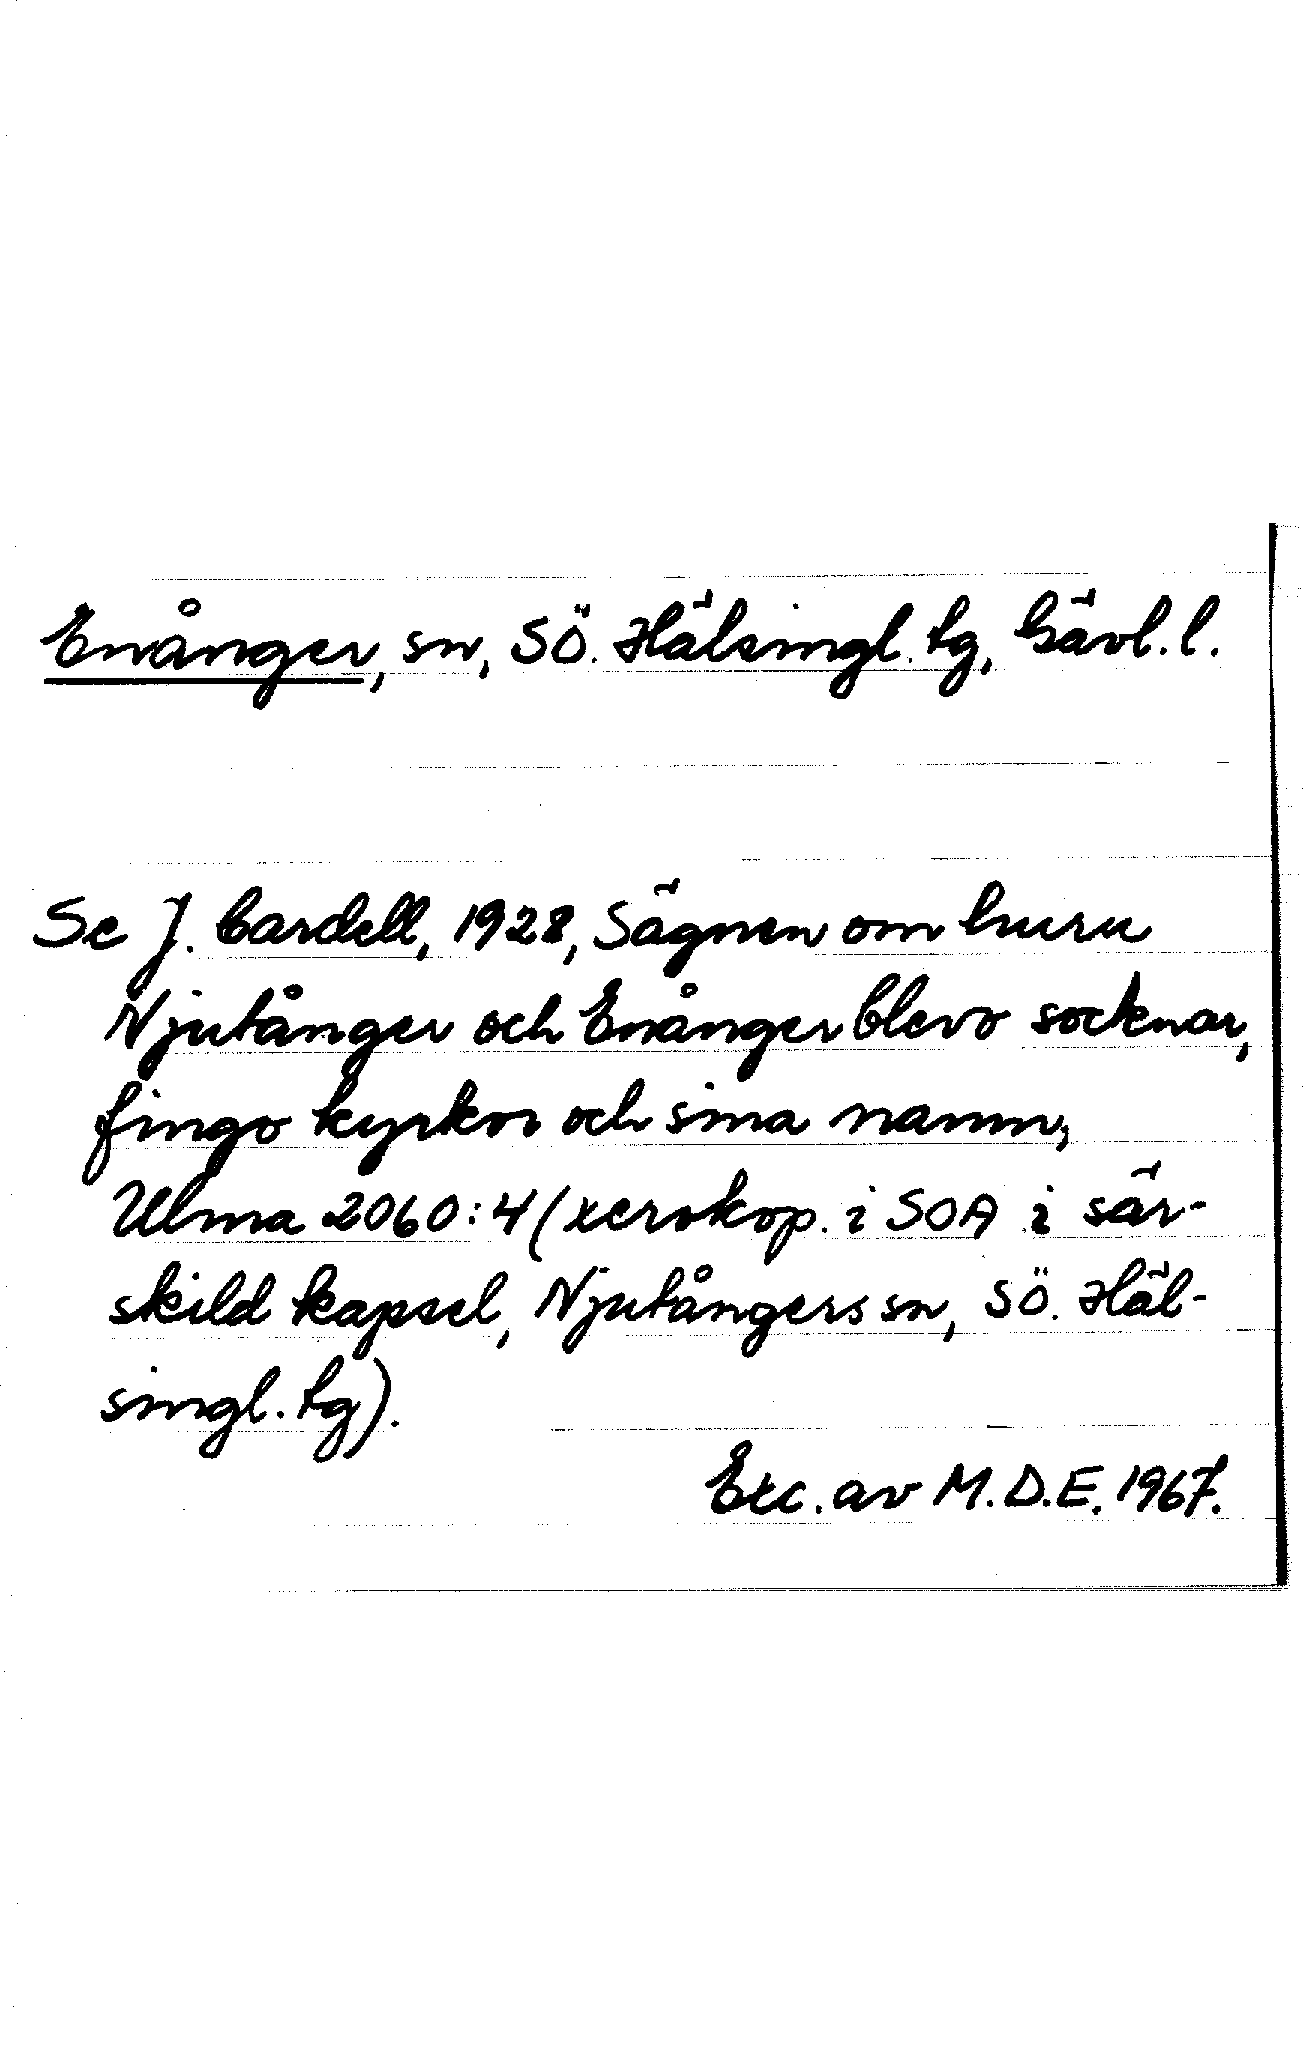 Enånger, sn, SÖ. Hälsingl. tg, Gävl. l.
Se J. Cardell, 1928, Sägnen om huru
Njutånger och Enånger blevo socknar,
fingo kyrkor och sina namn,
Ulma 2060:4 (xerokop. i SOA i sär-
skild kapsel, Njutångers sn, SÖ. Häl-
singl. tg).
Exc. av M.D.E. 1967.